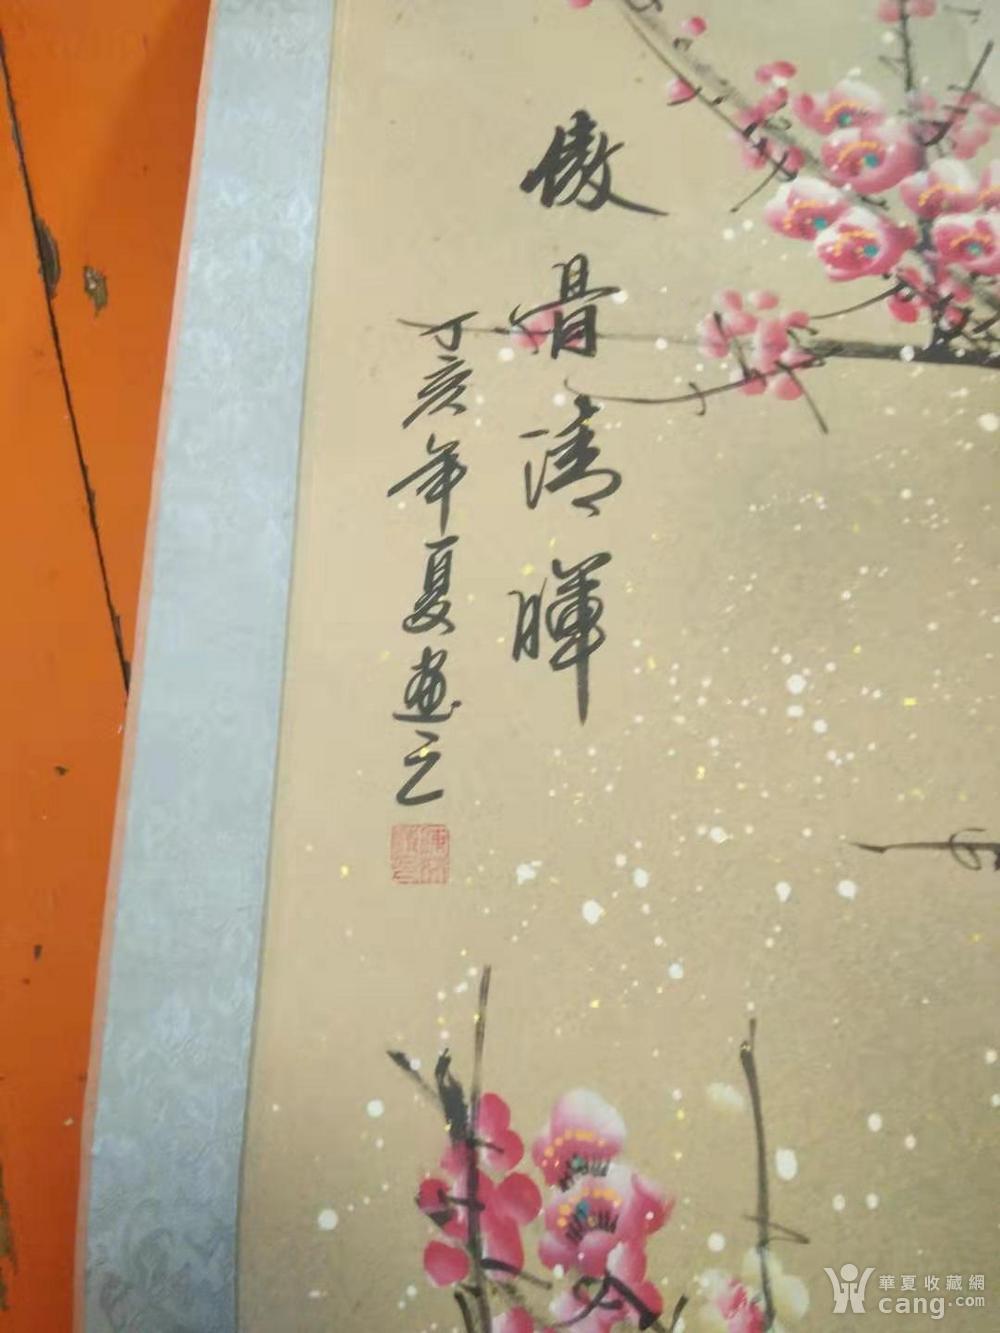 傲骨清暉
丁亥年夏画之
華夏收藏網
cang.com